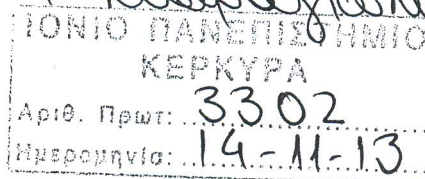 ΙΟΝΙΟ ΠΑΝΕΠΙΣΤΗΜΙΟ
ΚΕΡΚΥΡΑ
Αριθ. Πρωτ: 3302
Ημερομηνία: 14-11-13